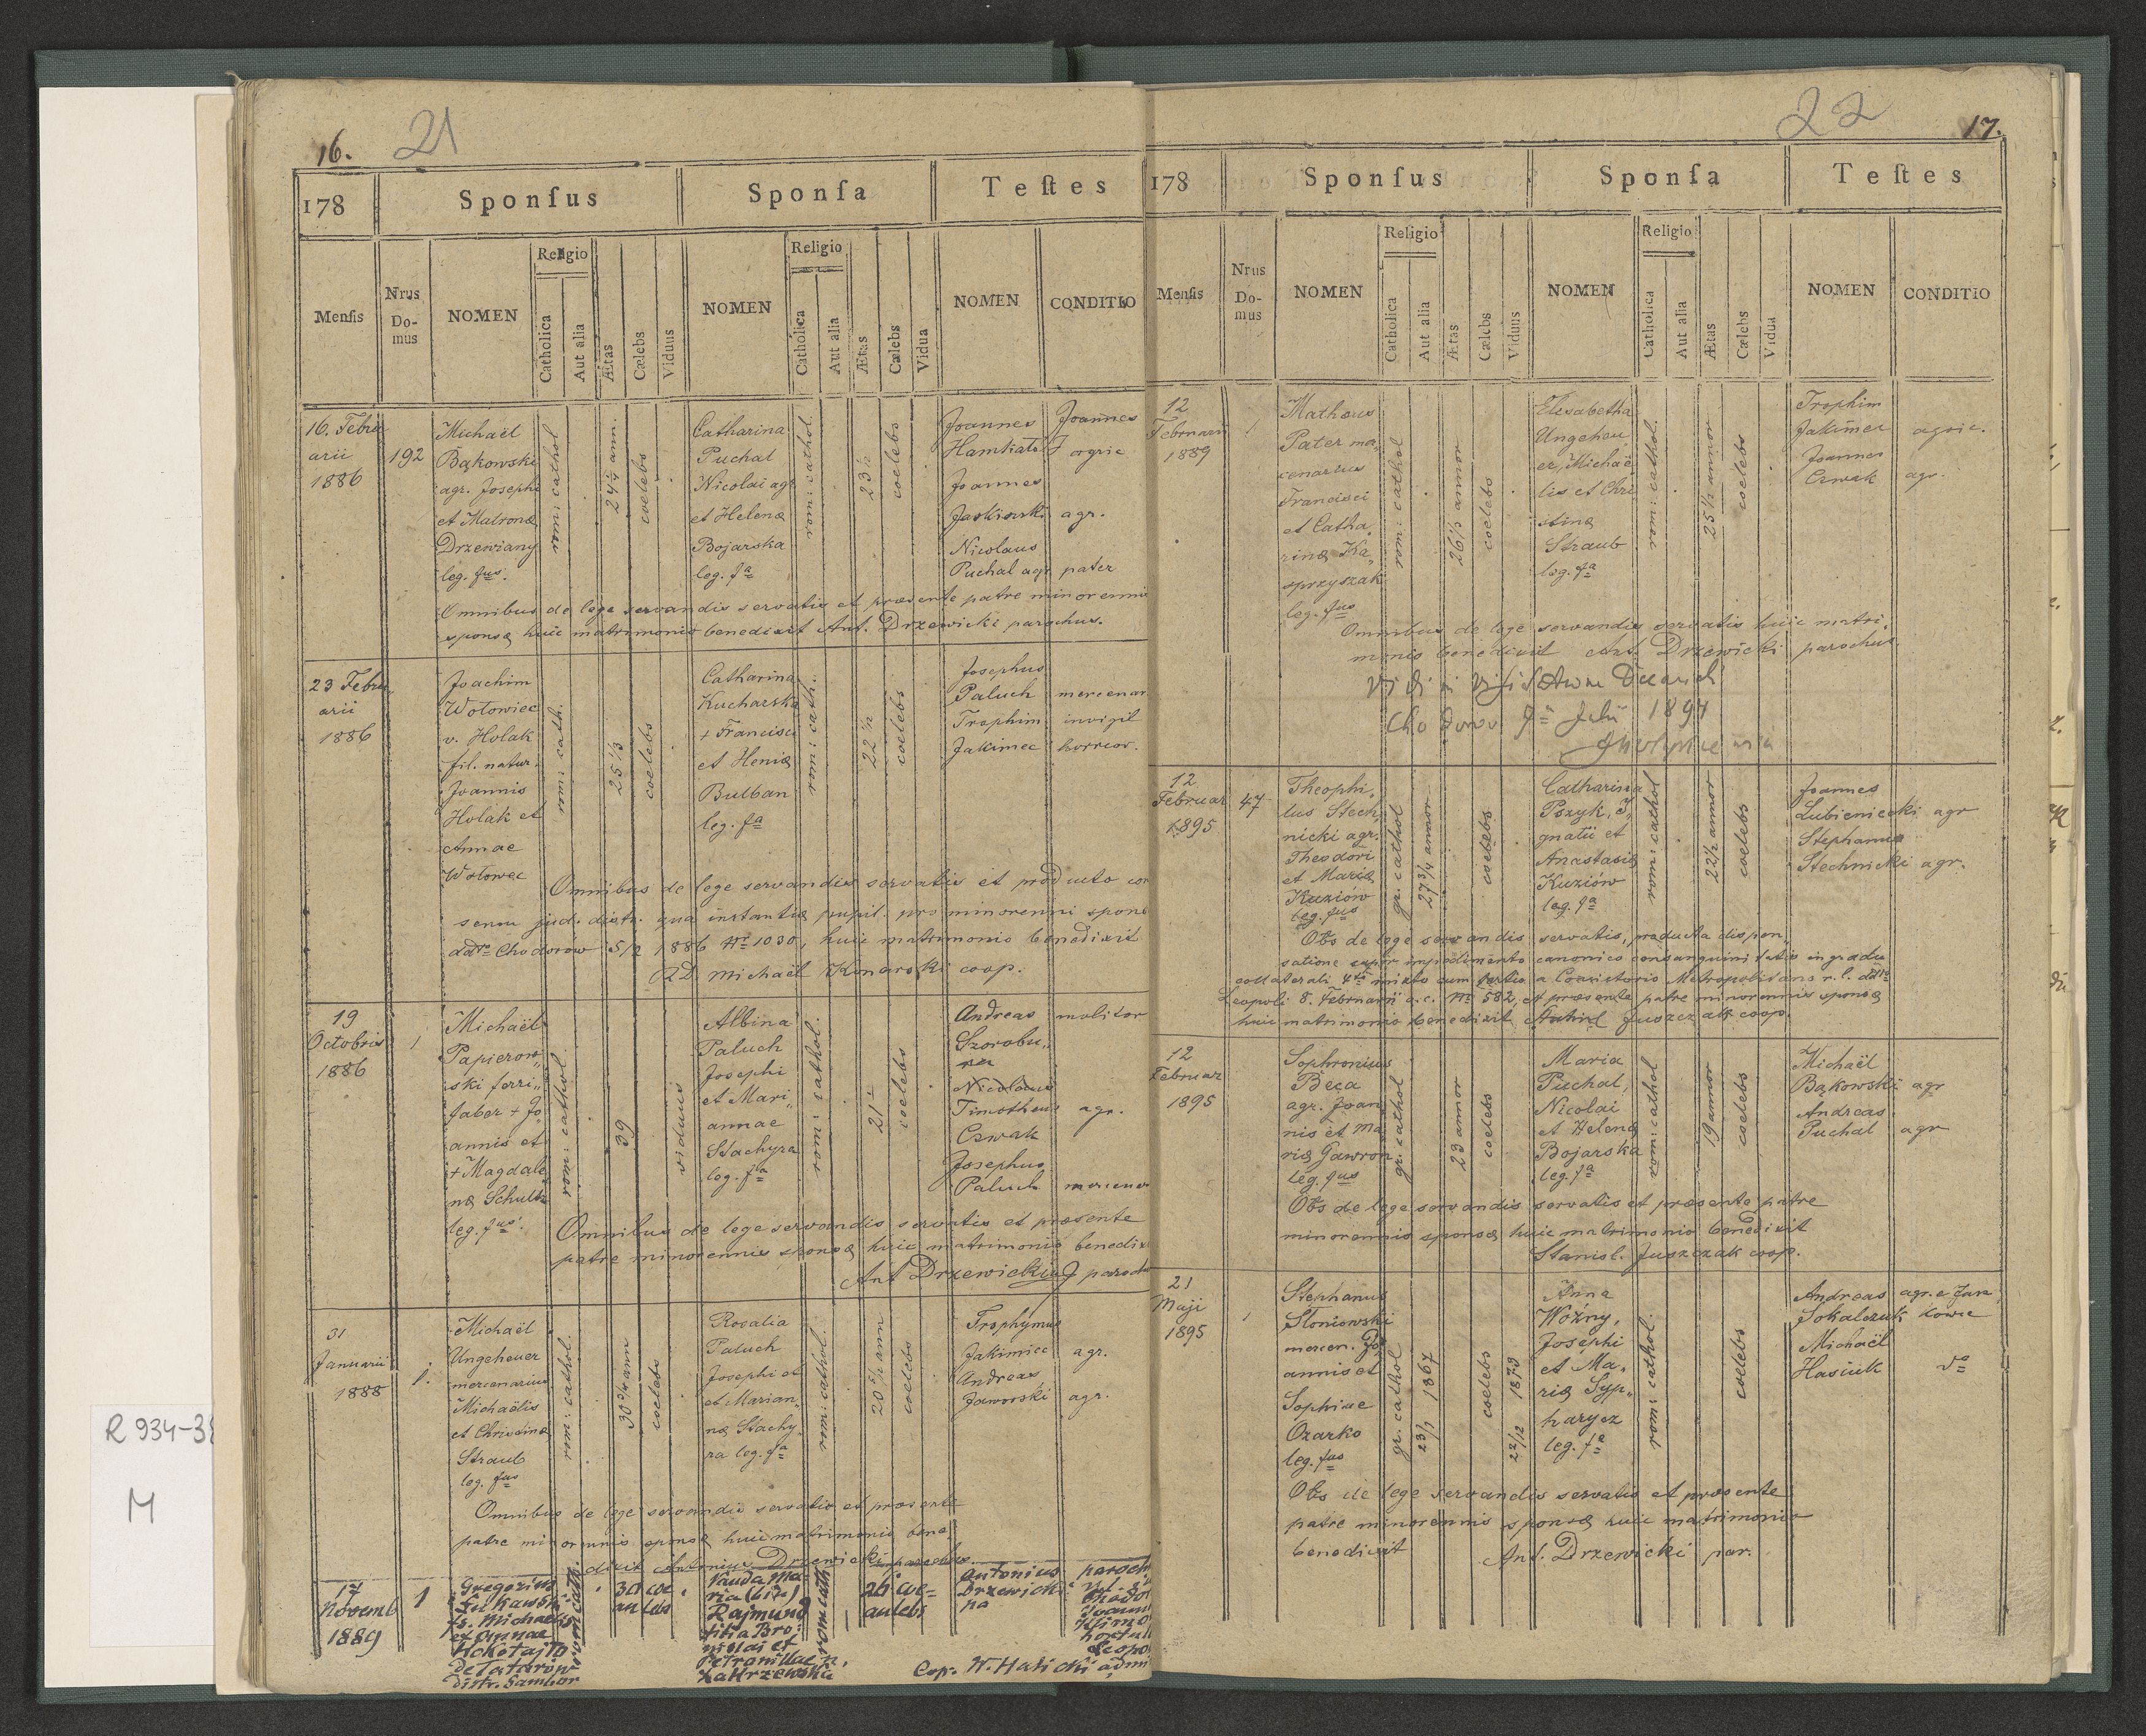 16. 21
178 Sponsus Sponsa Testes
Mensis Nrus Domus NOMEN Religio Catholica Aut alia Ætas Cælebs Viduus NOMEN Religio Catholica Aut alia Ætas Cælebs Vidua NOMEN CONDITIO
16. Febru
arii
1886
192
Michaël
Bąkowski
agr. Josephi
et Matronæ
Drzewiany
leg. fus.
rom: cathol
24 1/4 ann.
coelebs
Catharina
Puchal
Nicolai agr
et Helenæ
Bojarska
leg. fa
rom: cathol.
23 1/2
coelebs
Joannes
Joannes
agric
Joannes
Jaskiewski agr.
Nicolaus
Puchal agr pater
Omnibus de lege servandis servatis et præsente patre minorennis
sponsæ huic matrimonio benedixit Ant. Drzewicki parochus.
23 Febru
arii
1886
Joachim
Wołowiec
v. Holak
fil. natur.
Joannis
Holak et
Annae
Wołowec
rom: cath.
25 1/3
coelebs
Catharina
Kucharska
+ Francisci
et Heniæ
Bulban
leg. fa
rom: cath.
22 1/2
coelebs
Josephus
Paluch mercenar
Trophim invigil
Jakimec horreor.
Omnibus de lege servandis servatis et producto con
sensu jud. distr. qua instantiæ pupil. pro minorenni spons
ddto Chodorow 5/2 1886 No 1030, huic matrimonio benedixit
RD Michaël Konarski coop.
19
Octobris
1886
1
Michaël
Papierow„
ski ferri„
faber + Jo
annis et
+ Magdale
næ Schultz
leg. fus.
rom: cathol.
39
viduus
Albina
Paluch
Josephi
et Mari„
annae
Stachyra
leg. fa
rom: cathol.
21
coelebs
Andreas molitor
Szorobu„
Nicolaus
Timotheus agr.
Czwak
Josephus
Paluch mercenar
Omnibus de lege servandis servatis et præsente
patre minorennis sponsæ huic matrimonio benedix
Ant Drzewicki paroch
31
Januarii
1888
1.
Michaël
Ungeheuer
mercenarius
Michaëlis
et Christinæ
Straub
leg. fus
rom: cathol.
30 3/4 ann
coelebs
Rosalia
Paluch
Josephi et
et Marian„
næ Stachy
ra leg. fa
rom: cathol.
20 5/12 ann
coelebs
Trophymus
Jakimiec agr.
Andreas
Jaworski agr.
Omnibus de lege servandis servatis et præsente
patre minorennis sponsæ huic matrimonio bene
dixit Antonius Drzewicki parochus.
17
Novemb
1889
1
Gregorius
fs. Michaelis
et Annae
Kokotajło
de Tatarów
distr. Sambor
rom cath.
30 coe
an lebs
Vanda Ma
ria (bin)
Rajmund
filia Bro:
nislai et
Petronillae n.
Zakrzewska
rom cath
26 coe=
an lebs
Antonius paroch
Drzewicki
Cop. W. Halicki admi
22 17.
178 Sponsus Sponsa Testes
Mensis Nrus Domus NOMEN Religio Catholica Aut alia Ætas Cælebs Viduus NOMEN Religio Catholica Aut alia Ætas Cælebs Vidua NOMEN CONDITIO
12
Februarii
1889
1
Matheus
Pater mer
cenarius
Francisci
et Catha
rinæ Ka„
sprzyszak
leg. fus
rom: cathol
26 1/2 annor
coelebs
Elisabetha
Ungeheu
er, Michaë
lis et Chri
stinæ
Straub
leg. fa
rom: cathol.
25 1/2 annor
coelebs
Trophim
Jakimec agric.
Joannes
Czwak agr.
Omnibus de lege servandis servatis huic matri„
monio benedixit Ant. Drzewicki parochus.
Vidi in visitatione Decanali
Chodorow 1897
12
Februar
1895
47
Theophi„
lus Stech„
nicki agr.
Theodori
et Mariæ
Kuziów
leg. fus
gr. cathol
27 3/4 annor
coelebs
Catharina
Pszyk, I„
gnatii et
Anastasiæ
Kuziów
leg. fa
rom: cathol
22 1/2 annor
coelebs
Joannes
Lubieniecki agr
Stephanus
Stechnicki agr.
Obs de lege servandis servatis, producta dispen„
satione super impedimento canonico consanguinitatis in gradu
collaterali 4to mixto cum tertio a Consistorio Metropolitano r. l. ddto
Leopoli 8. Februarii a. c. No 582, et præsente patre minorennis sponsæ
huic matrimonio benedixit Juszczak coop.
12
Februar
1895
Sophronius
Beca
agr. Joan
nis et Ma
riæ Gawron
leg. fus
gr. cathol
23 annor
coelebs
Maria
Puchal,
Nicolai
et Helenæ
Bojarska
leg. fa
rom: cathol
19 annor
coelebs
Michaël
Bąkowski agr
Andreas
Puchal agr
Obs de lege servandis servatis et præsente patre
minorennis sponsæ huic matrimonio benedixit
Stanisl. Juszczak coop.
21
Maji
1895
1
Stephanus
Słoniowski
mercen. Jo
annis et
Sophiae
Ozarko
leg. fus
gr. cathol
23/7 1867
coelebs
Anna
Woźny,
Josephi
et Ma„
riæ Syp„
harycz
leg. fa
22/12 1873
rom: cathol.
coelebs
Andreas agr. e Jan
Sokalczuk kowce
Michaël
Hasiuk do
Obs de lege servandis servatis et præsente
patre minorennis sponsæ huic matrimonio
benedixit
Ant. Drzewicki par.
R 934-3
M